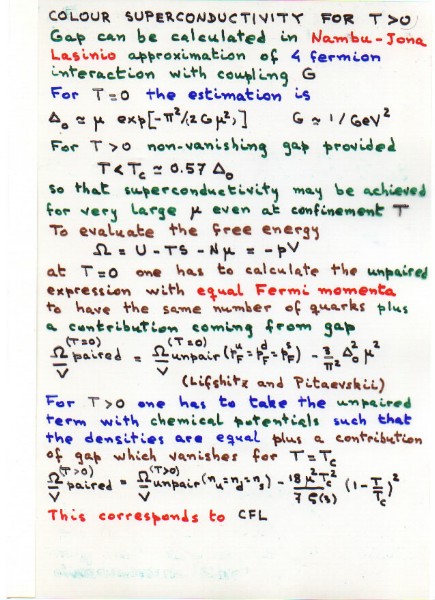 COLOUR SUPERCONDUCTIVITY FOR T>0
Gap can be calculated in Nambu-Jona
Lasinio approximation of 4 fermion
interaction with coupling G
For T=0 the estimation is
Δ₀ ≃ μ exp[-π²/(2Gμ²)] G ≃ 1/GeV²
For T>0 non-vanishing gap provided
T<T_c ≃ 0.57 Δ₀
so that superconductivity may be achieved
for very large μ even at confinement T
To evaluate the free energy
Ω = U - TS - Nμ = -pV
at T=0 one has to calculate the unpaired
expression with equal Fermi momenta
to have the same number of quarks plus
a contribution coming from gap
Ω/V^(T=0) paired = Ω/V^(T=0) unpair (p_F^u = p_F^d = p_F^s) - 3/π² Δ₀² μ²
(Lifshitz and Pitaevskii)
For T>0 one has to take the unpaired
term with chemical potentials such that
the densities are equal plus a contribution
of gap which vanishes for T=T_c
Ω/V^(T>0) paired = Ω/V^(T>0) unpair (n_u=n_d=n_s) - 18μ²T_c²/7ζ(3) (1-T/T_c)²
This corresponds to CFL